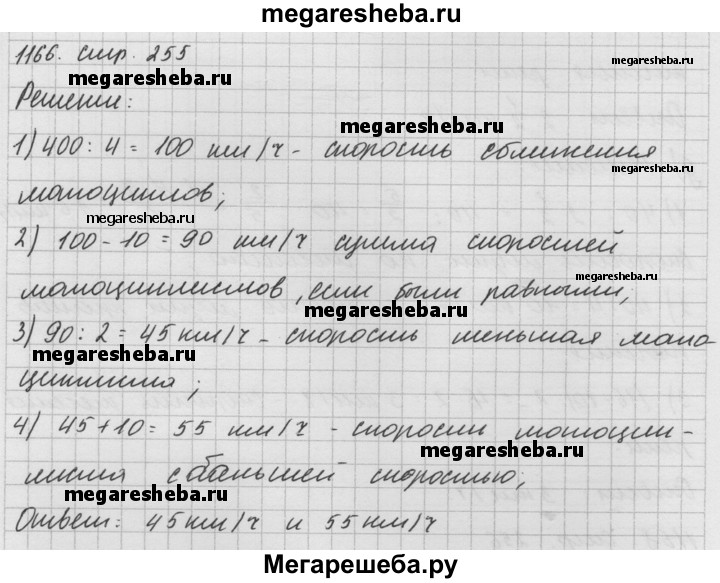 megaresheba.ru
1166. стр. 255
megaresheba.ru
megaresheba.ru
Решение:
megaresheba.ru
1) 400 : 4 = 100 км/ч - скорость сближения
megaresheba.ru
мотоциклов;
megaresheba.ru
2) 100 - 10 = 90 км/ч сумма скоростей
megaresheba.ru
мотоциклистов, если были равными;
megaresheba.ru
3) 90 : 2 = 45 км/ч - скорость меньшая мото-
megaresheba.ru
циклиста;
4) 45 + 10 = 55 км/ч - скорости мотоцик-
megaresheba.ru
листа с большей скоростью;
megaresheba.ru
Ответ: 45 км/ч и 55 км/ч
Мегарешеба.ру